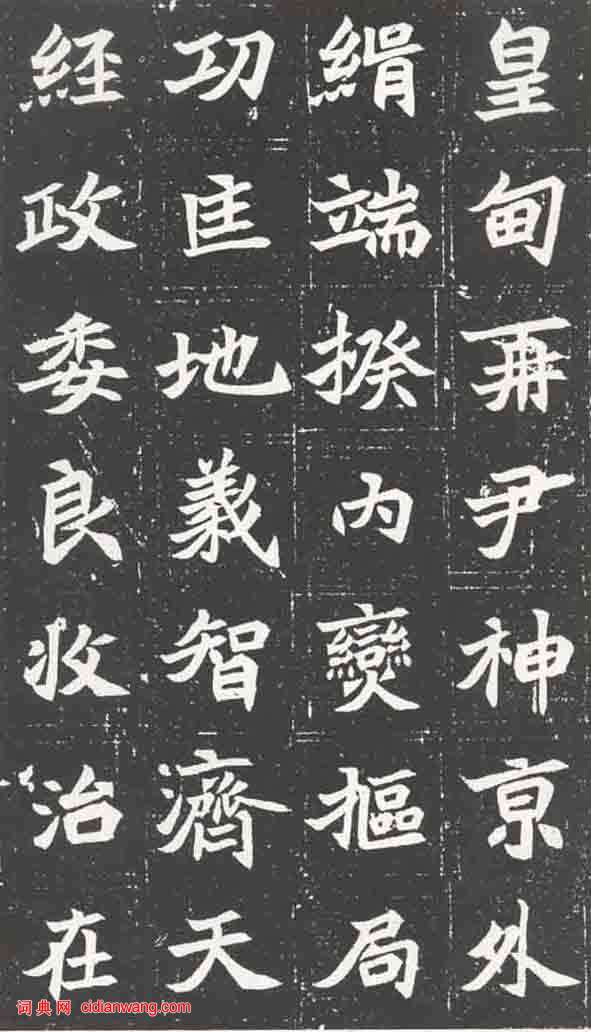 皇甸再尹神京外
緝端揆内燮樞局
功匡地義智濟天
經政委良收治在
词典网 cidianwang.com